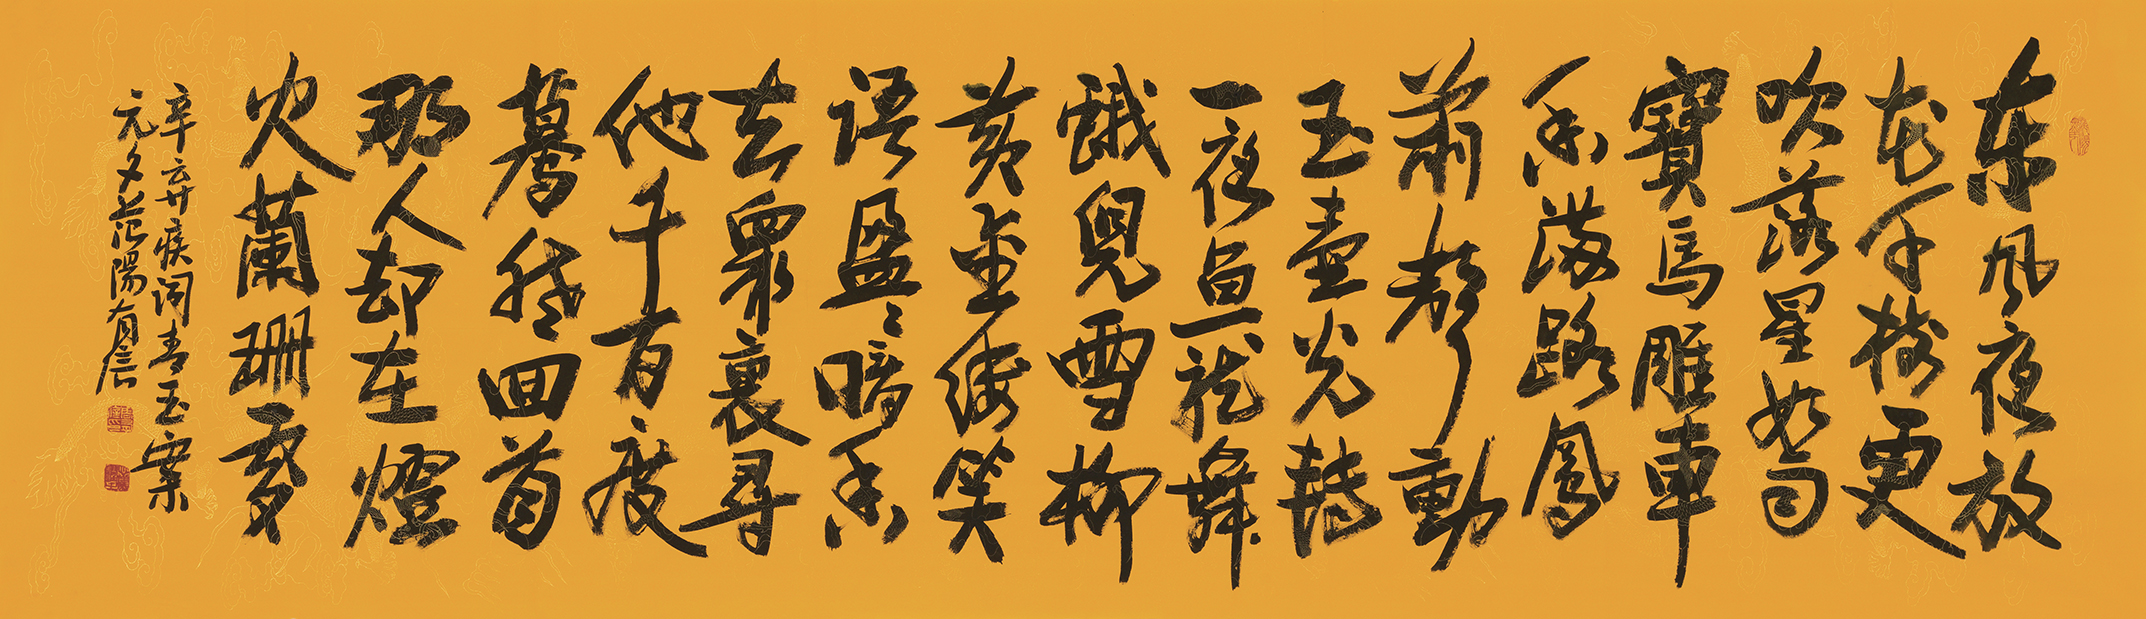 东风夜放
花千樹更
吹落星如雨
寶馬雕車
香滿路鳳
簫聲動
玉壺光轉
一夜魚龍舞
蛾兒雪柳
黃金縷笑
語盈〻暗香
去眾裏尋
他千百度
驀然回首
那人却在燈
火蘭珊處
辛弃疾词青玉案
元夕范陽有晨